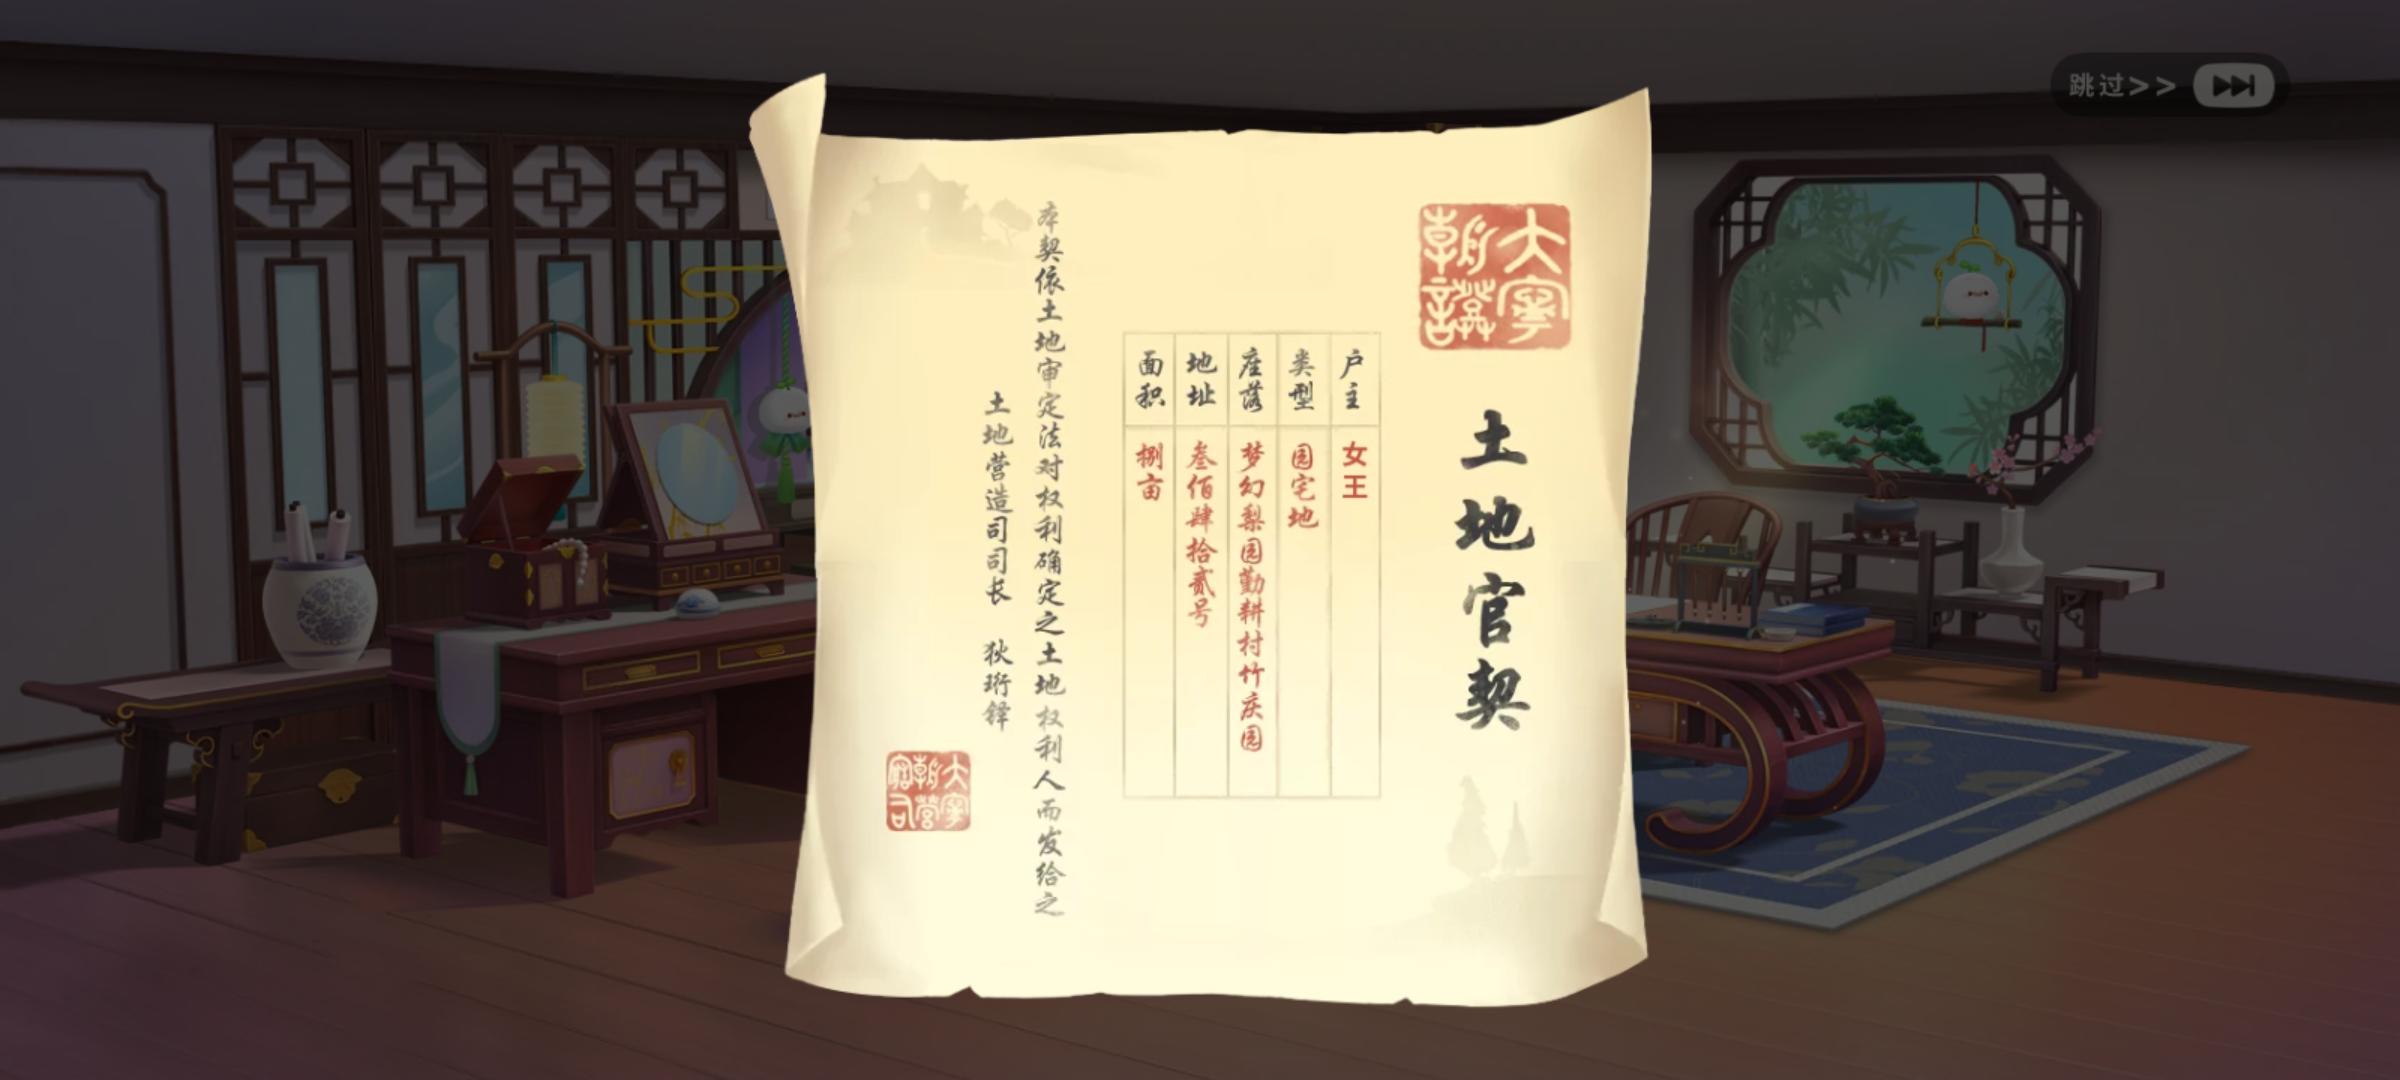 跳过>>
大寧
朝證
土地官契
户主 女王
类型 园宅地
座落 梦幻梨园勤耕村竹庆园
地址 叁佰肆拾贰号
面积 捌亩
本契依土地审定法对权利确定之土地权利人而发给之
土地营造司司长 狄珩铎
大寧
朝營
司